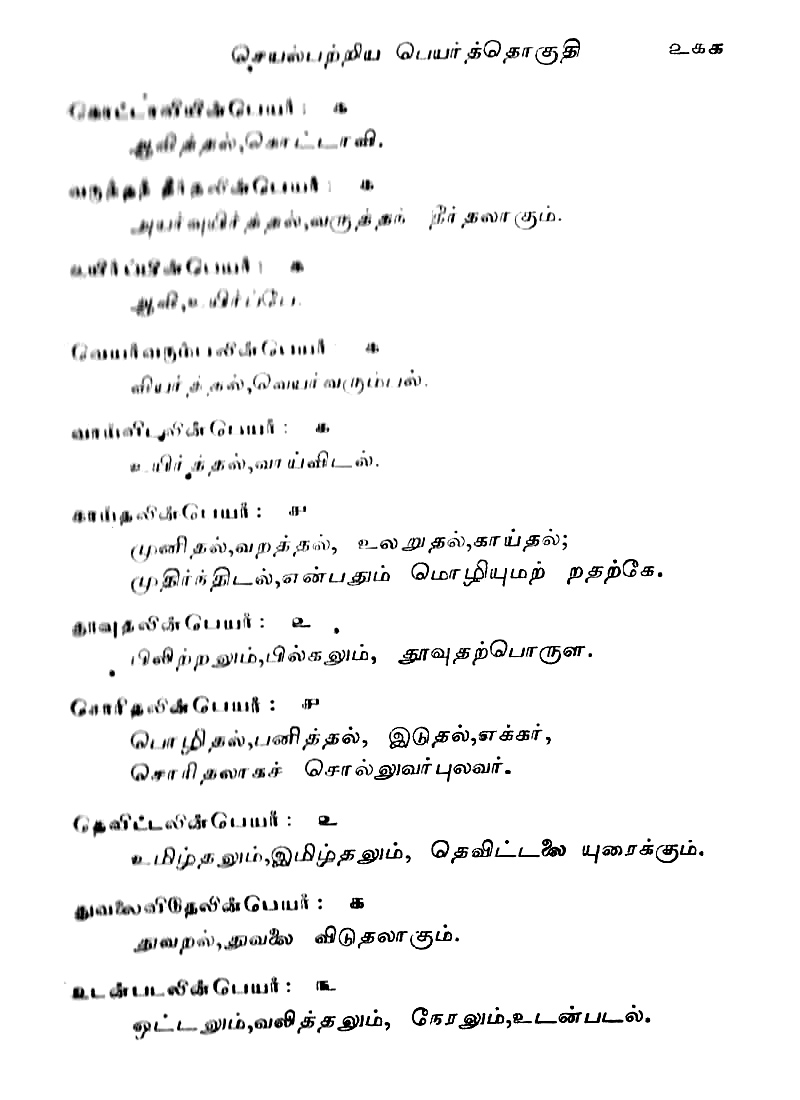 செயல்பற்றிய பெயர்த்தொகுதி உகக
கொட்டாவியின்பெயர்: க
ஆவித்தல்,கொட்டாவி.
வருத்தந் தீர்தலின்பெயர்: க
அயர்வுயிர்த்தல்,வருத்தந் தீர்தலாகும்.
உயிர்ப்பின்பெயர்: க
ஆவி,உயிர்ப்பே.
வெயர்வரும்பலின்பெயர் க
வியர்த்தல்,வெயர்வரும்பல்.
வாய்விடலின்பெயர்: க
உயிர்த்தல்,வாய்விடல்.
காய்தலின்பெயர்: ச
முனிதல்,வறத்தல், உலறுதல்,காய்தல்;
முதிர்ந்திடல்,என்பதும் மொழியுமற் றதற்கே.
தூவுதலின்பெயர்: உ
பிலிற்றலும்,பில்கலும், தூவுதற்பொருள.
சொரிதலின்பெயர்: ச
பொழிதல்,பனித்தல், இடுதல்,எக்கர்,
சொரிதலாகச் சொல்லுவர்புலவர்.
தெவிட்டலின்பெயர்: உ
உமிழ்தலும்,இமிழ்தலும், தெவிட்டலை யுரைக்கும்.
துவலைவிடுதலின்பெயர்: க
துவறல்,துவலை விடுதலாகும்.
உடன்படலின்பெயர்: ௩
ஒட்டலும்,வலித்தலும், நேரலும்,உடன்படல்.